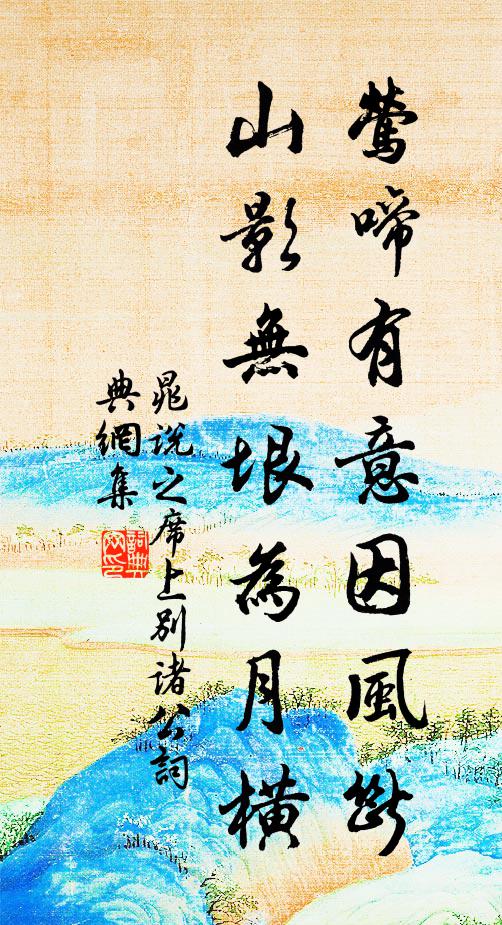 鶯啼有意因風斷
山影無垠為月橫
晁說之席上別諸公詞
典網集
詞典